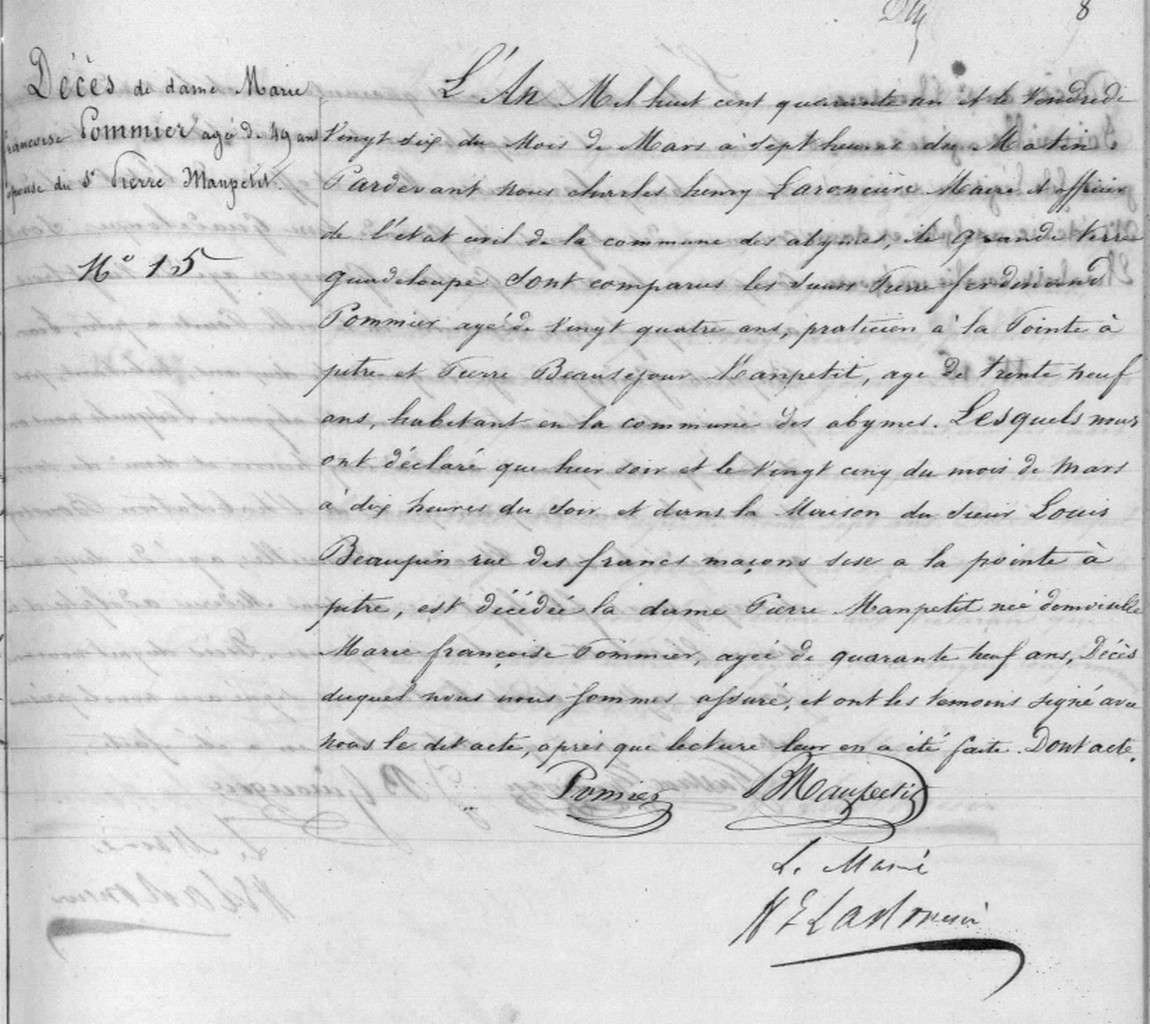 8
Décès de dame Marie
françoise Pommier agée de 49 ans
épouse du Sr Pierre Maupetit.
N° 15
L'An Mil huit cent quarante un et le vendredi
vingt six du Mois de Mars à sept heures du Matin,
Pardevant nous charles henry Laroncière Maire et officier
de l'état civil de la commune des abymes, île grande terre
guadeloupe sont comparus les sieurs Pierre ferdinand
Pommier agé de vingt quatre ans, praticien à la Pointe à
pitre et Pierre Beauséjour Maupetit, age de trente neuf
ans, habitant en la commune des abymes. Lesquels nous
ont déclaré que hier soir et le vingt cinq du mois de mars
à dix heures du soir et dans la Maison du sieur Louis
Beaupin rue des francs maçons sise a la pointe à
pitre, est décédée la dame Pierre Maupetit née demoiselle
Marie françoise Pommier, agée de quarante neuf ans, Décès
duquel nous nous sommes assuré, et ont les temoins signé avec
nous le dit acte, après que lecture leur en a été faite. Dont acte.
Pomier BMaupetit
Le Maire